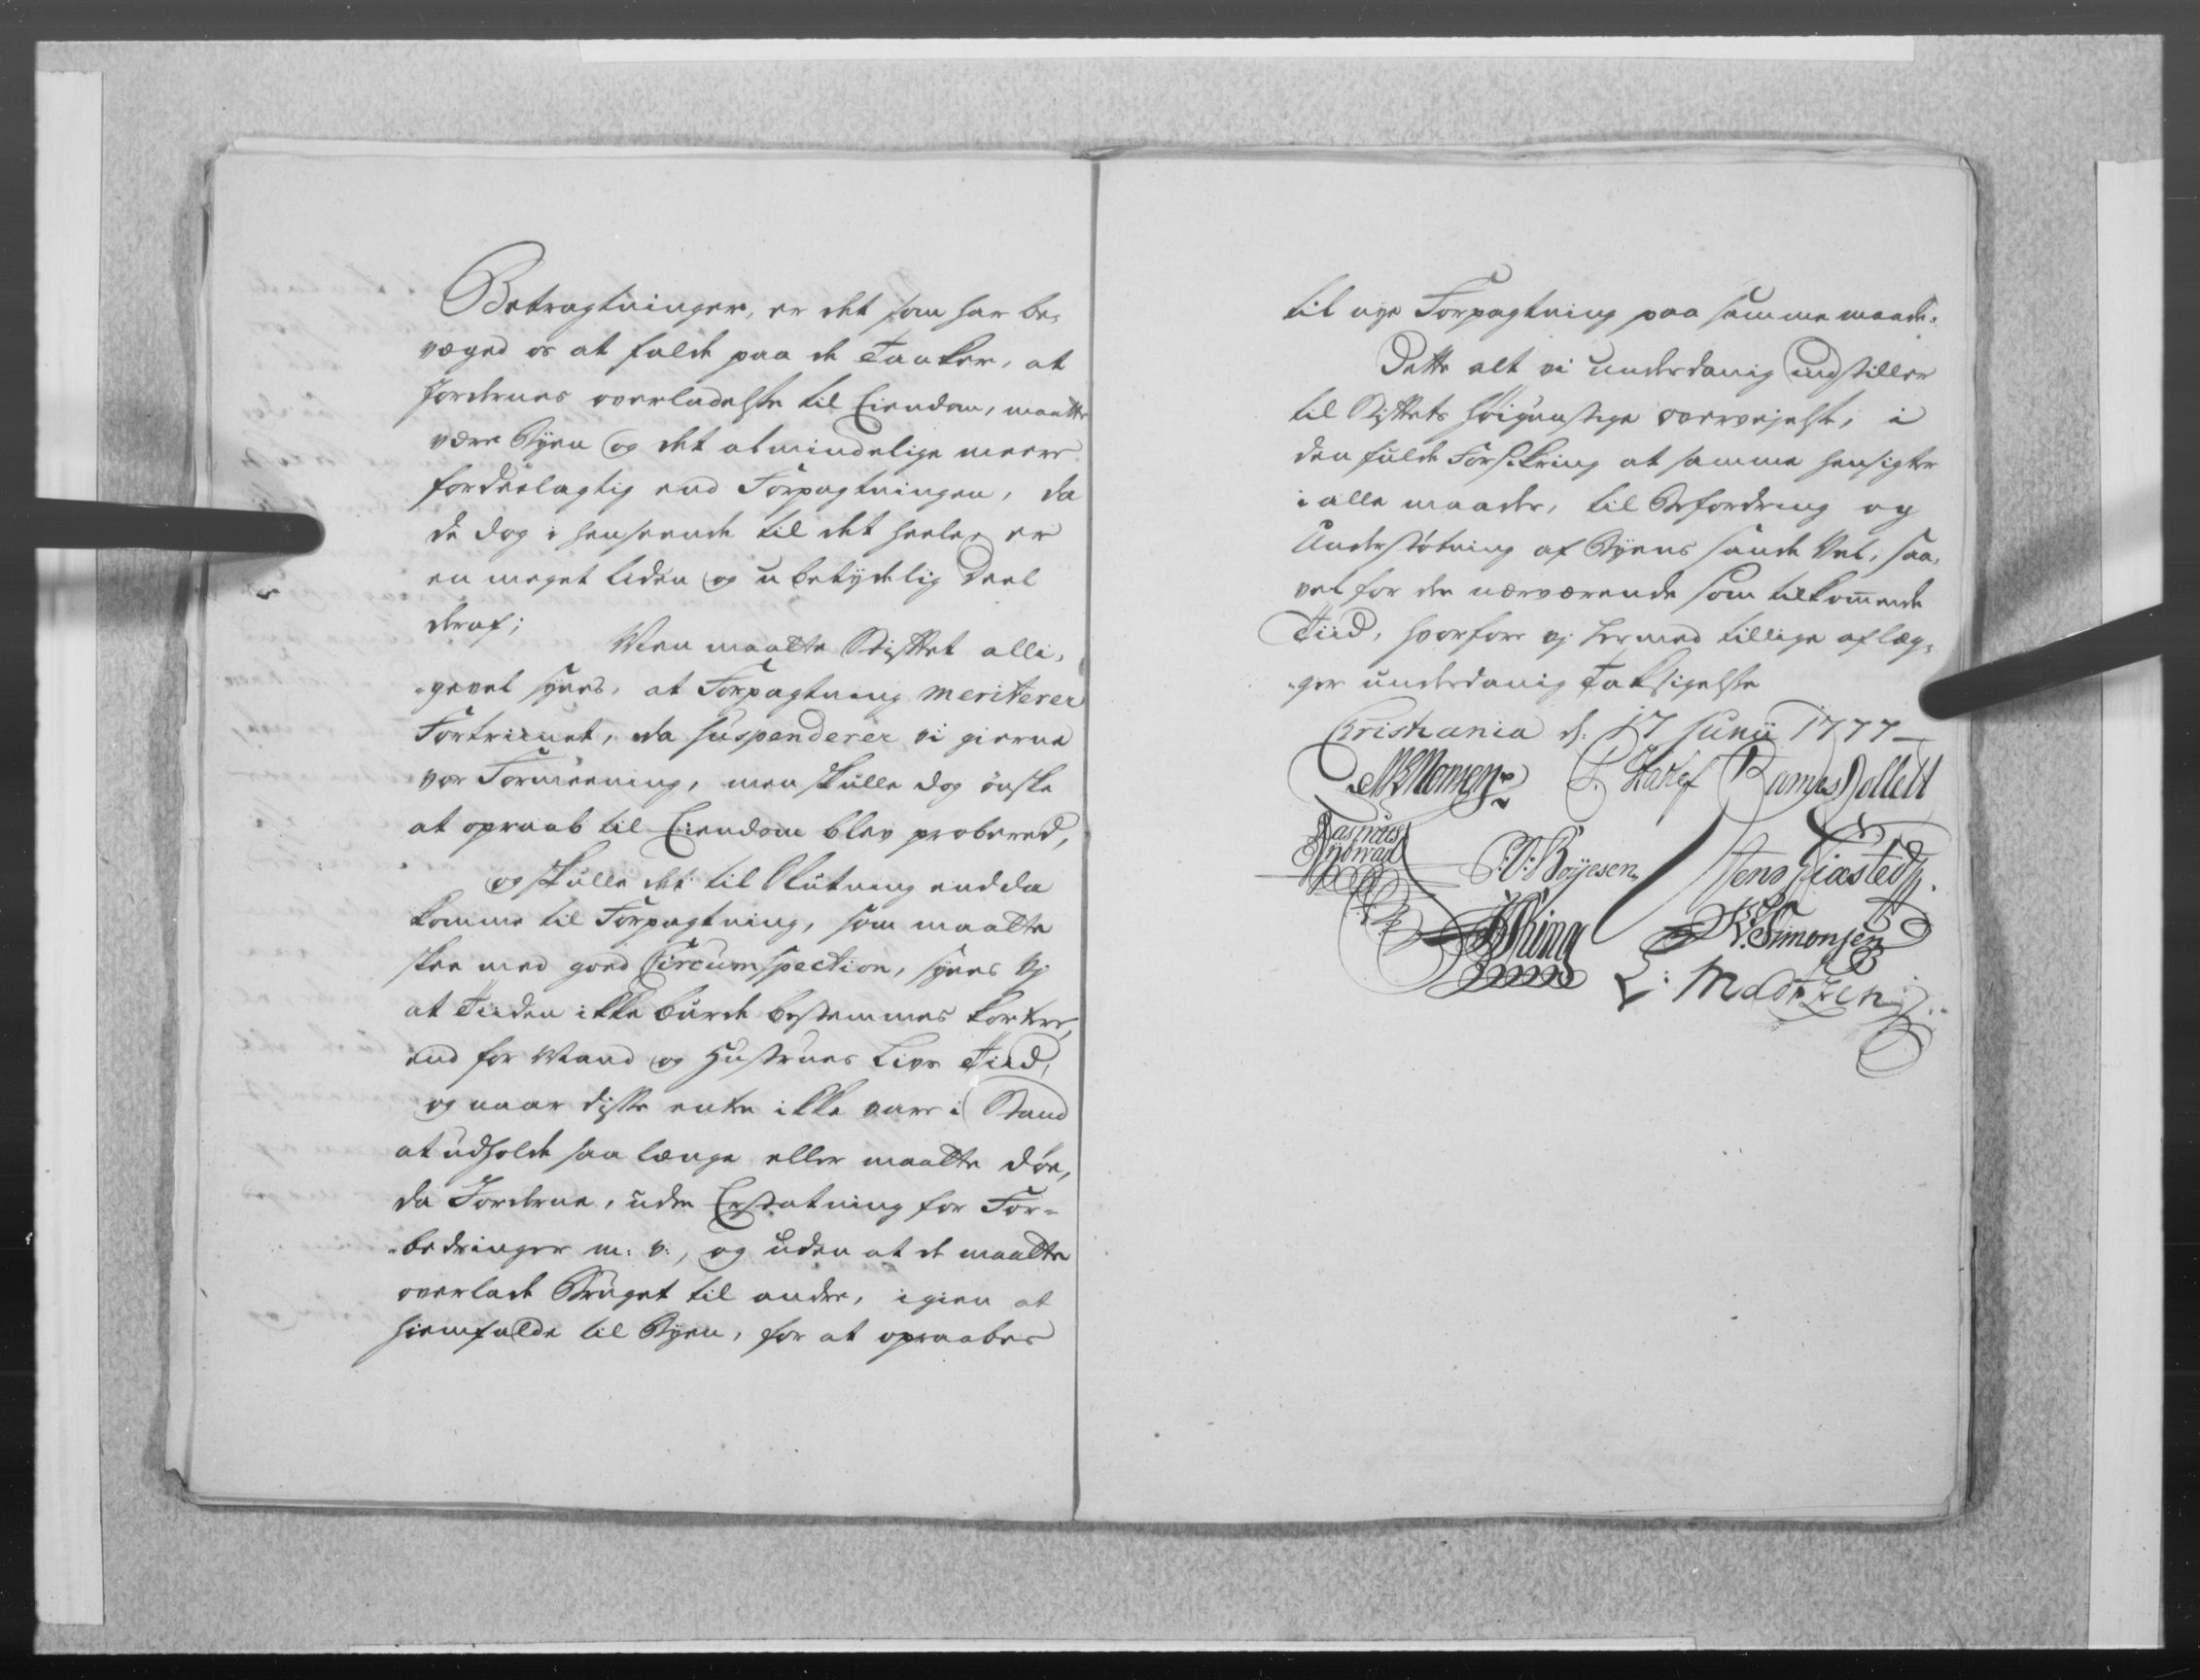 Betragtninger, er det som har be-
væged os at falde paa de Tanker, at
Jordernes overladelse til Eiendom, maatte
være Byen og det almindelige meere
fordeelagtig end Forpagtningen, da
de dog i henseende til det heele, er
en meget liden og ubetydelig Deel
deraf;
Men maatte Stiftet alli-
-gevel synes, at Forpagtning meriterer
Fortrinet, da suspenderer vi gierne
vor Formeening, men skulle dog ønske
at opraab til Eiendom blev probered,
og skulle det til Slutning endda
komme til Forpagtning, som maatte
skee med goed Circumspection, synes vj
at Tiiden ikke burde bestemmes korter,
end for Mand og Hustrues Livs Tiid,
og naar disse enten ikke vare i Stand
at udholde saa længe eller maatte døe,
da Jorderne, uden Erstatning for For-
-bedringer m: v:, og uden at de maatte
overlade Bruget til andre, igien at
hiemfalde til Byen, for at opraabes
til nye Forpagtning paa samme maade.
Dette alt vi underdanig indstiller
til Stiftets høigunstige overvejelse, i
den fulde Forsikring at samme hensigter
i alle maader, til Befordring og
Understøtning af Byens sande Vel, saa-
vel for den nærværende som tilkom̄ende
Tiid, hvorfore vj hermed tillige aflæg-
-ger underdanig Taksigelse
Christiania d: 17 Junii 1777
MMonsen P. Hartef James Collett
Rasmus P: Boyesen Jens Giæsted
Ring Simonsen
L: Madtzen